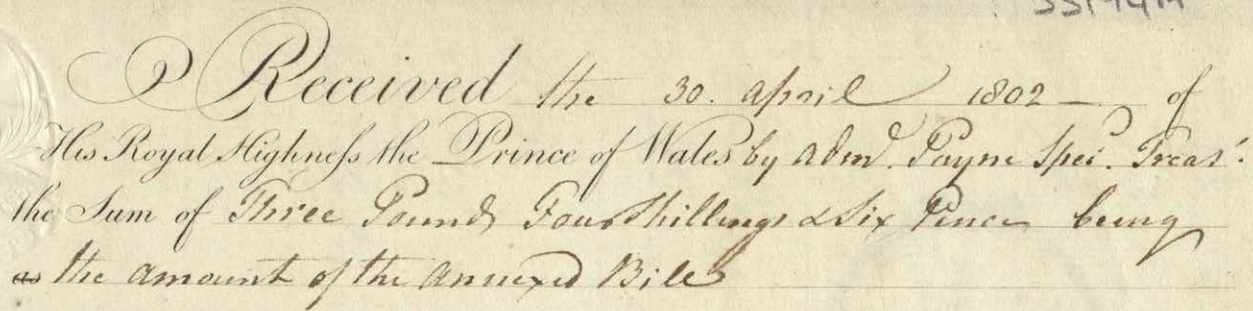 Received the 30. April 1802 — of
His Royal Highneſs the Prince of Wales by Adml. Payne Spec. Treasr.
the Sum of Three Pounds Four Shillings & Six Pence being
as the Amount of the Annexed Bill